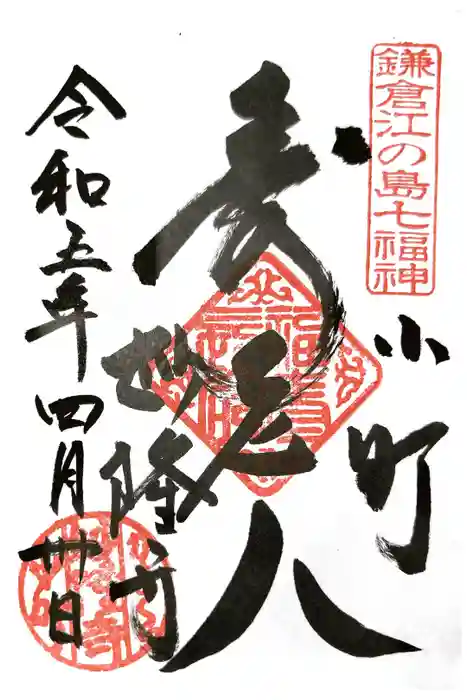 鎌倉江の島七福神
小町
寿老人
妙隆寺
令和五年四月卅日